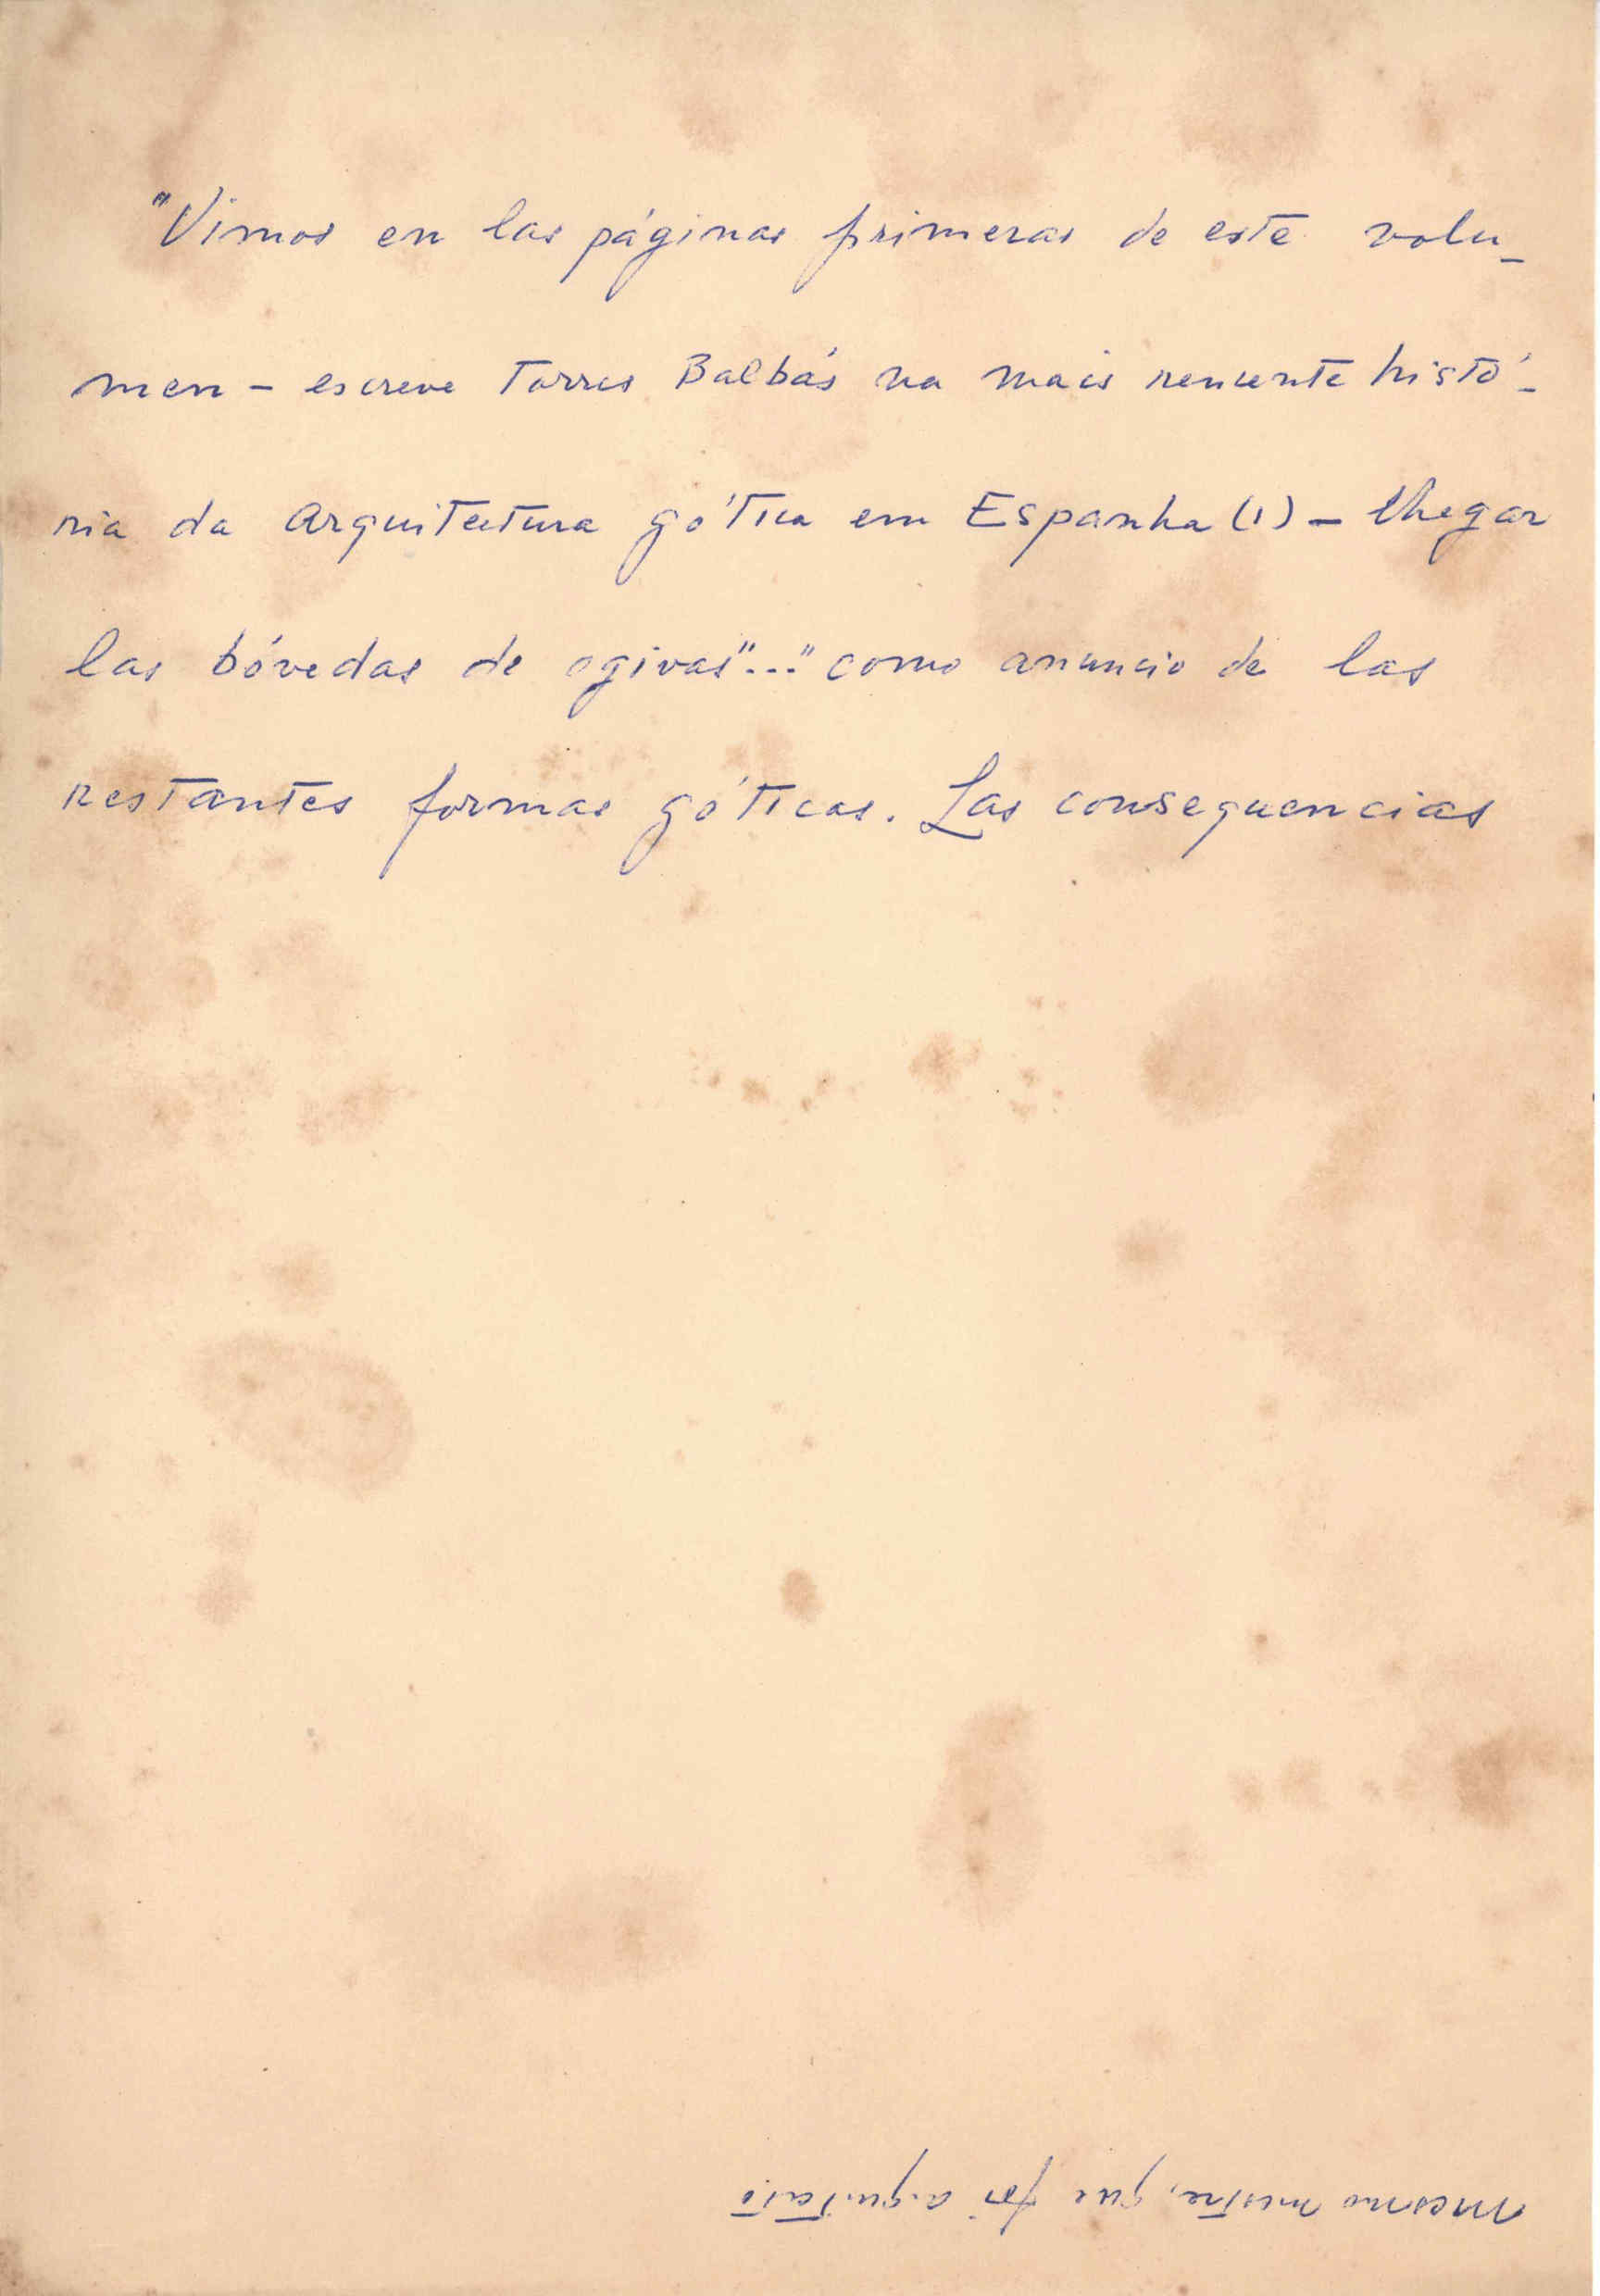 "Vimos en las páginas primeras de este volu-
men - escreve Torres Balbás na mais rencente histó-
ria da arquitectura gótica em Espanha (1) - lhegar
las bóvedas de ogivas"..." como anuncio de las
restantes formas góticas. Las consequencias
mesmo mestre, que foi arquitecto